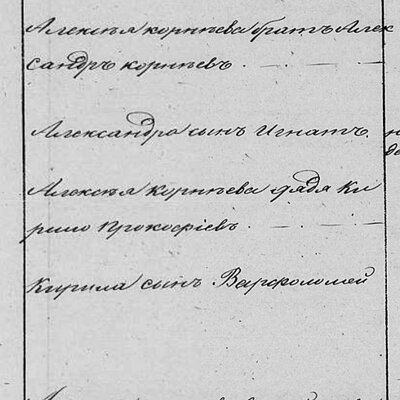 Алексѣя корнѣева братъ Алек
сандръ корнѣевъ.
Александра сынъ Игнатъ.
Алексѣя корнѣева дядя Ки
рило Прокофіевъ.
Кирила сынъ Варфоломей